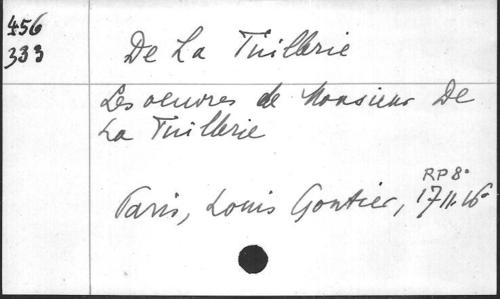 456
333
De La Tuillerie
Les oeuvres de Monsieur De
La Tuillerie
RP 8°
Paris, Louis Gontier,